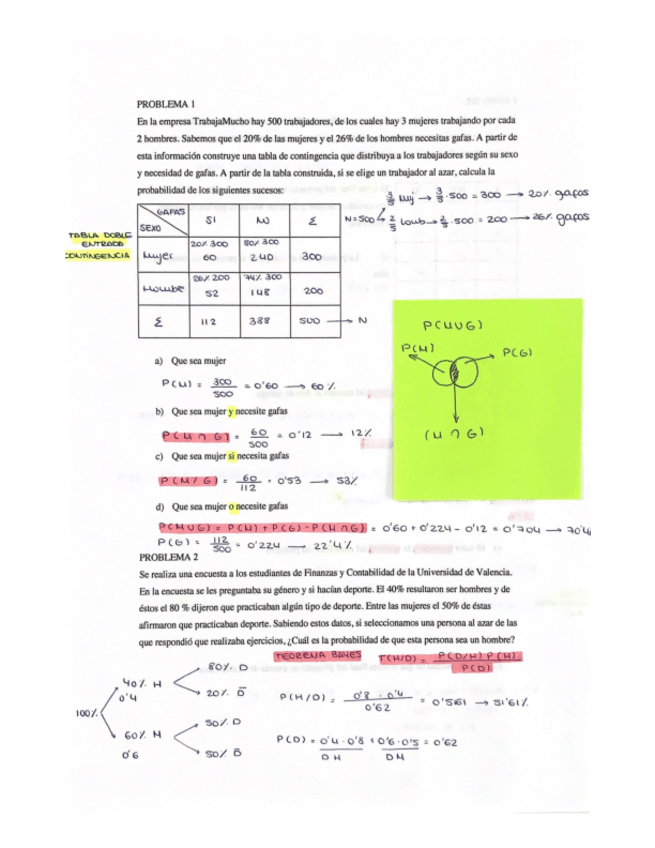 PROBLEMA 1
En la empresa TrabajaMucho hay 500 trabajadores, de los cuales hay 3 mujeres trabajando por cada
2 hombres. Sabemos que el 20% de las mujeres y el 26% de los hombres necesitas gafas. A partir de
esta información construye una tabla de contingencia que distribuya a los trabajadores según su sexo
y necesidad de gafas. A partir de la tabla construida, si se elige un trabajador al azar, calcula la
probabilidad de los siguientes sucesos:
N=500
3/5 Muj → 3/5 · 500 = 300 → 20% gafas
2/5 homb → 2/5 · 500 = 200 → 26% gafas
TABLA DOBLE
ENTRADA
CONTINGENCIA
GAFAS
SEXO
SI NO Σ
20% 300 80% 300
Mujer 60 240 300
26% 200 74% 300
Hombre 52 148 200
Σ 112 388 500 → N
P(MUG)
P(M) P(G)
(M ∩ G)
a) Que sea mujer
P(M) = 300/500 = 0'60 → 60%
b) Que sea mujer y necesite gafas
P(M ∩ G) = 60/500 = 0'12 → 12%
c) Que sea mujer si necesita gafas
P(M/G) = 60/112 = 0'53 → 53%
d) Que sea mujer o necesite gafas
P(MUG) = P(M) + P(G) - P(M ∩ G) = 0'60 + 0'224 - 0'12 = 0'704 → 70'4
P(G) = 112/500 = 0'224 → 22'4%
PROBLEMA 2
Se realiza una encuesta a los estudiantes de Finanzas y Contabilidad de la Universidad de Valencia.
En la encuesta se les preguntaba su género y si hacían deporte. El 40% resultaron ser hombres y de
éstos el 80 % dijeron que practicaban algún tipo de deporte. Entre las mujeres el 50% de éstas
afirmaron que practicaban deporte. Sabiendo estos datos, si seleccionamos una persona al azar de las
que respondió que realizaba ejercicios, ¿Cuál es la probabilidad de que esta persona sea un hombre?
TEOREMA BAYES P(H/D) = P(D/H) P(H) / P(D)
100%
40% H
0'4
80% D
20% D̄
60% M
0'6
50% D
50% D̄
P(H/D) = 0'8 · 0'4 / 0'62 = 0'5161 → 51'61%
P(D) = 0'4 · 0'8 + 0'6 · 0'5 = 0'62
DH DM